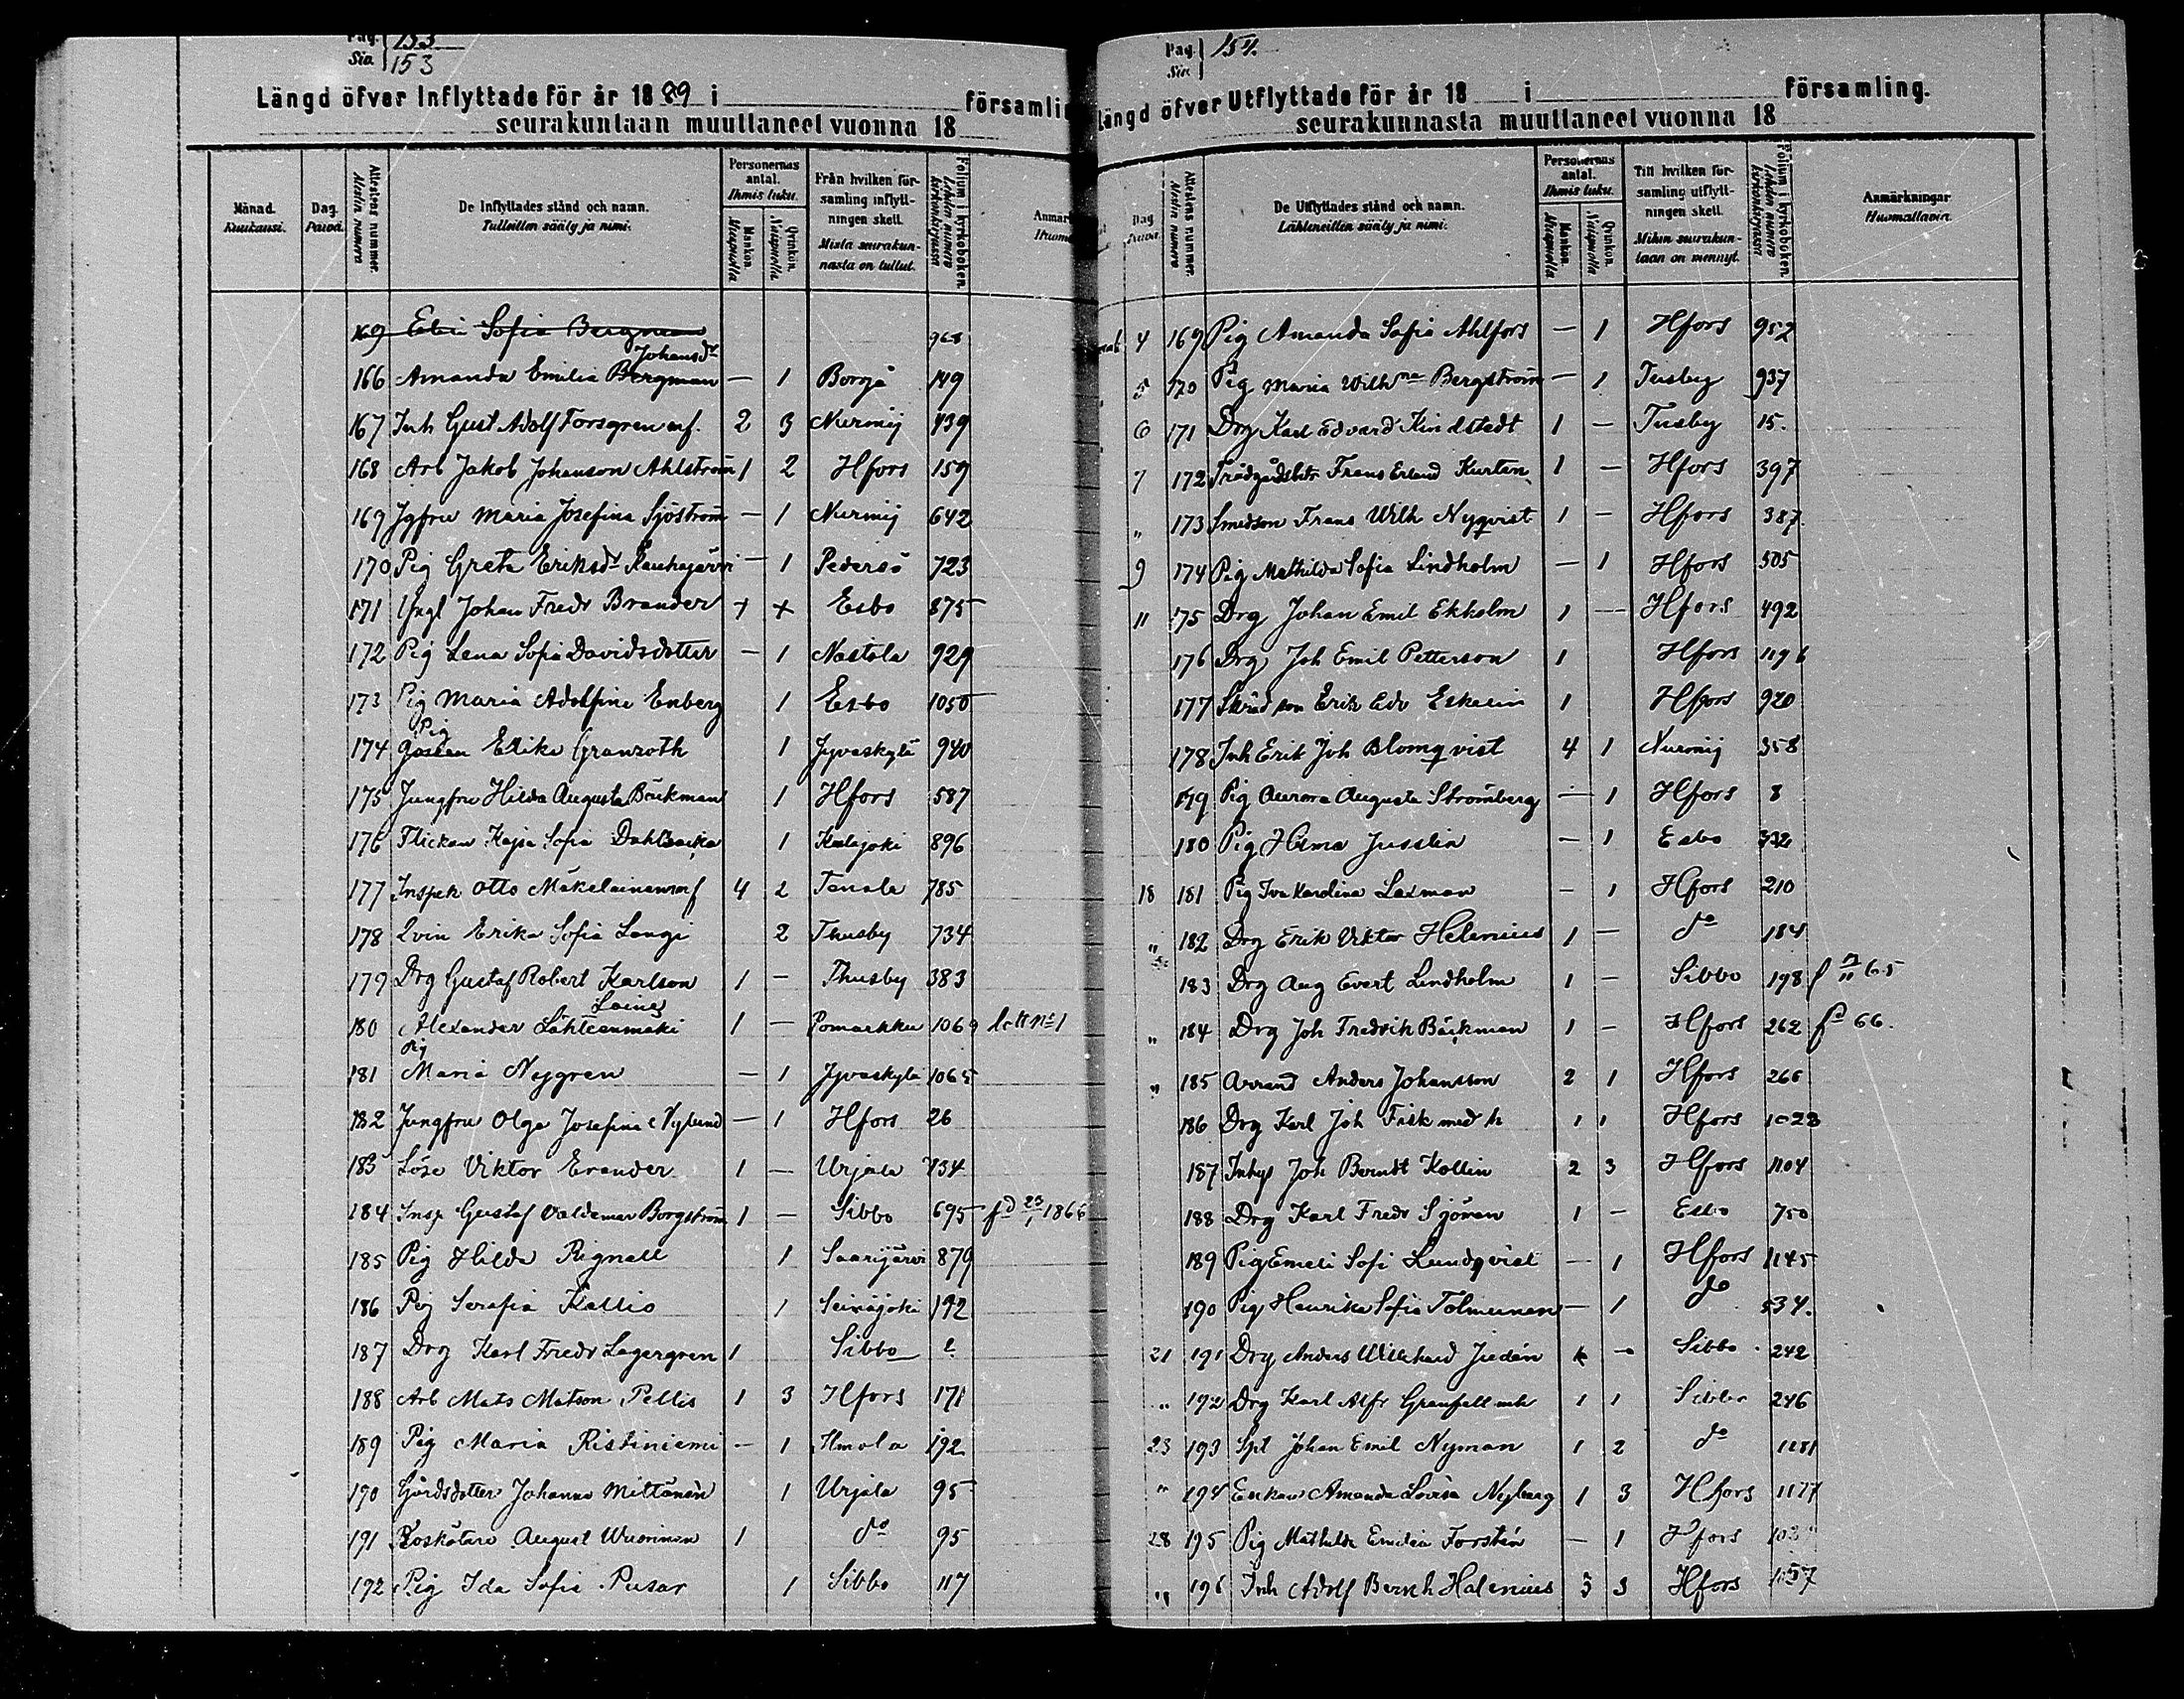 Pag. 153
Siv. 153
Längd öfver Inflyttade för år 1889 i församlin
seurakuntaan muuttaneet vuonna 18
Månad. Kuukausi.
Dag. Päivä.
Attestens nummer. Attestin numero
De Inflyttades stånd och namn. Tulleitten sääty ja nimi.
Personernas antal. Ihmis luku.
Mankön. Miespuolia
Qvinkön. Naispuolia
Från hvilken församling inflyttningen skett. Mistä seurakunnasta on tullut.
Folium i kyrkoboken. Lehden numero kirkonkirjassa
169 Sofia Bergman 968
166 Amanda Emilia Bergman Johansdr — 1 Borgå 149
167 Inh Gust Adolf Forsgren mf. 2 3 Nurmij 439
168 Arb Jakob Johanson Ahlström 1 2 Hfors 159
169 Jgfru Maria Josefina Sjöström — 1 Nurmij 642
170 Pig Greta Eriksdr Kauhajärvi — 1 Pedersö 723
171 Yngl Johan Fredr Brander + + Esbo 875
172 Pig Lena Sofia Davidsdotter — 1 Nastola 929
173 Pig Maria Adolfina Enberg 1 Esbo 1050
174 Pig Erika Granroth 1 Jyvaskylä 940
175 Jungfru Hilda Augusta Bäckman 1 Hfors 587
176 Flickan Kajsa Sofia Dahlbacka 1 Kalajoki 896
177 Inspek Otto Mäkeläinen mf 4 2 Tenala 785
178 Qvin Erika Sofia Langi 2 Thusby 734
179 Drg Gustaf Robert Karlson 1 — Thusby 383
180 Alexander Lähteenmäki Laine 1 — Pomarkku 1069 lett No 1
181 Pig Maria Nygren — 1 Jyvaskyla 1065
182 Jungfru Olga Josefina Nylund — 1 Hfors 26
183 Löse Viktor Erander 1 — Urjala 734
184 Insp Gustaf Valdemar Borgström 1 — Sibbo 695 fd 23/1 1866
185 Pig Hilda Rignell 1 Saarijärvi 879
186 Pig Serafia Kallio 1 Seinäjoki 192
187 Drg Karl Fredr Lagergren 1 Sibbo 2
188 Arb Mats Matson Pellis 1 3 Hfors 171
189 Pig Maria Ristiniemi — 1 Ilmola 192
190 Gårdsdotter Johanna Mittänen 1 Urjala 95
191 Koskötare August Wuorinen 1 do 95
192 Pig Ida Sofia Pusar 1 Sibbo 117
Pag. 154.
Siv.
Längd öfver Utflyttade för år 18 i församling.
seurakunnasta muuttaneet vuonna 18
Dag Päivä.
Attestens nummer. Attestin numero
De Utflyttades stånd och namn. Lähteneitten sääty ja nimi.
Personernas antal. Ihmis luku.
Mankön. Miespuolia
Qvinkön. Naispuolia
Till hvilken församling utflyttningen skett. Mihin seurakuntaan on mennyt.
Folium i kyrkoboken. Lehden numero kirkonkirjassa
Anmärkningar Huomattavia.
4 169 Pig Amanda Sofia Ahlfors — 1 Hfors 952
5 170 Pig Maria Wilhna Bergström — 1 Tusby 937
6 171 Drg Karl Edvard Kindstedt 1 — Tusby 15.
7 172 Frans Erland Kurtén 1 — Hfors 397
" 173 Smedson Frans Wilh Nyqvist 1 — Hfors 387.
9 174 Pig Mathilda Sofia Lindholm — 1 Hfors 505
11 175 Drg Johan Emil Ekholm 1 — Hfors 492
176 Drg Joh Emil Petterson 1 Hfors 1196
177 Erik Edv Eskelin 1 Hfors 920
178 Inh Erik Joh Blomqvist 4 1 Nurmij 358
179 Pig Aurora Augusta Strömberg — 1 Hfors 8
180 Pig Hilma Jusslin — 1 Esbo 332
18 181 Pig Iva Karolina Laxman — 1 Hfors 210
" 182 Drg Erik Viktor Helenius 1 — do 184
183 Drg Aug Evert Lindholm 1 — Sibbo 198 65
" 184 Drg Joh Fredrik Bäckman 1 — Hfors 262 fd 66.
" 185 Arrend Anders Johansson 2 1 Hfors 266
186 Drg Karl Joh Frisk med h 1 1 Hfors 1023
187 Inhys Joh Berndt Kollin 2 3 Hfors 1104
188 Drg Karl Fredr Sjöman 1 — Esbo 750
189 Pig Emeli Sofi Lundqvist — 1 Hfors 1145
190 Pig Henrika Sofia Tolmunen — 1 do 534.
21 191 Drg Anders Willehard Judén 1 — Sibbo 242
" 192 Drg Karl Alfr Granfelt mh 1 1 Sibbo 246
23 193 Spt Johan Emil Nyman 1 2 do 1181
" 194 Enkan Amanda Lovisa Nyberg 1 3 Hfors 1177
28 195 Pig Mathilda Emilia Forstén — 1 Hfors
" 196 Inh Adolf Bernh Halenius 3 3 Hfors 1057